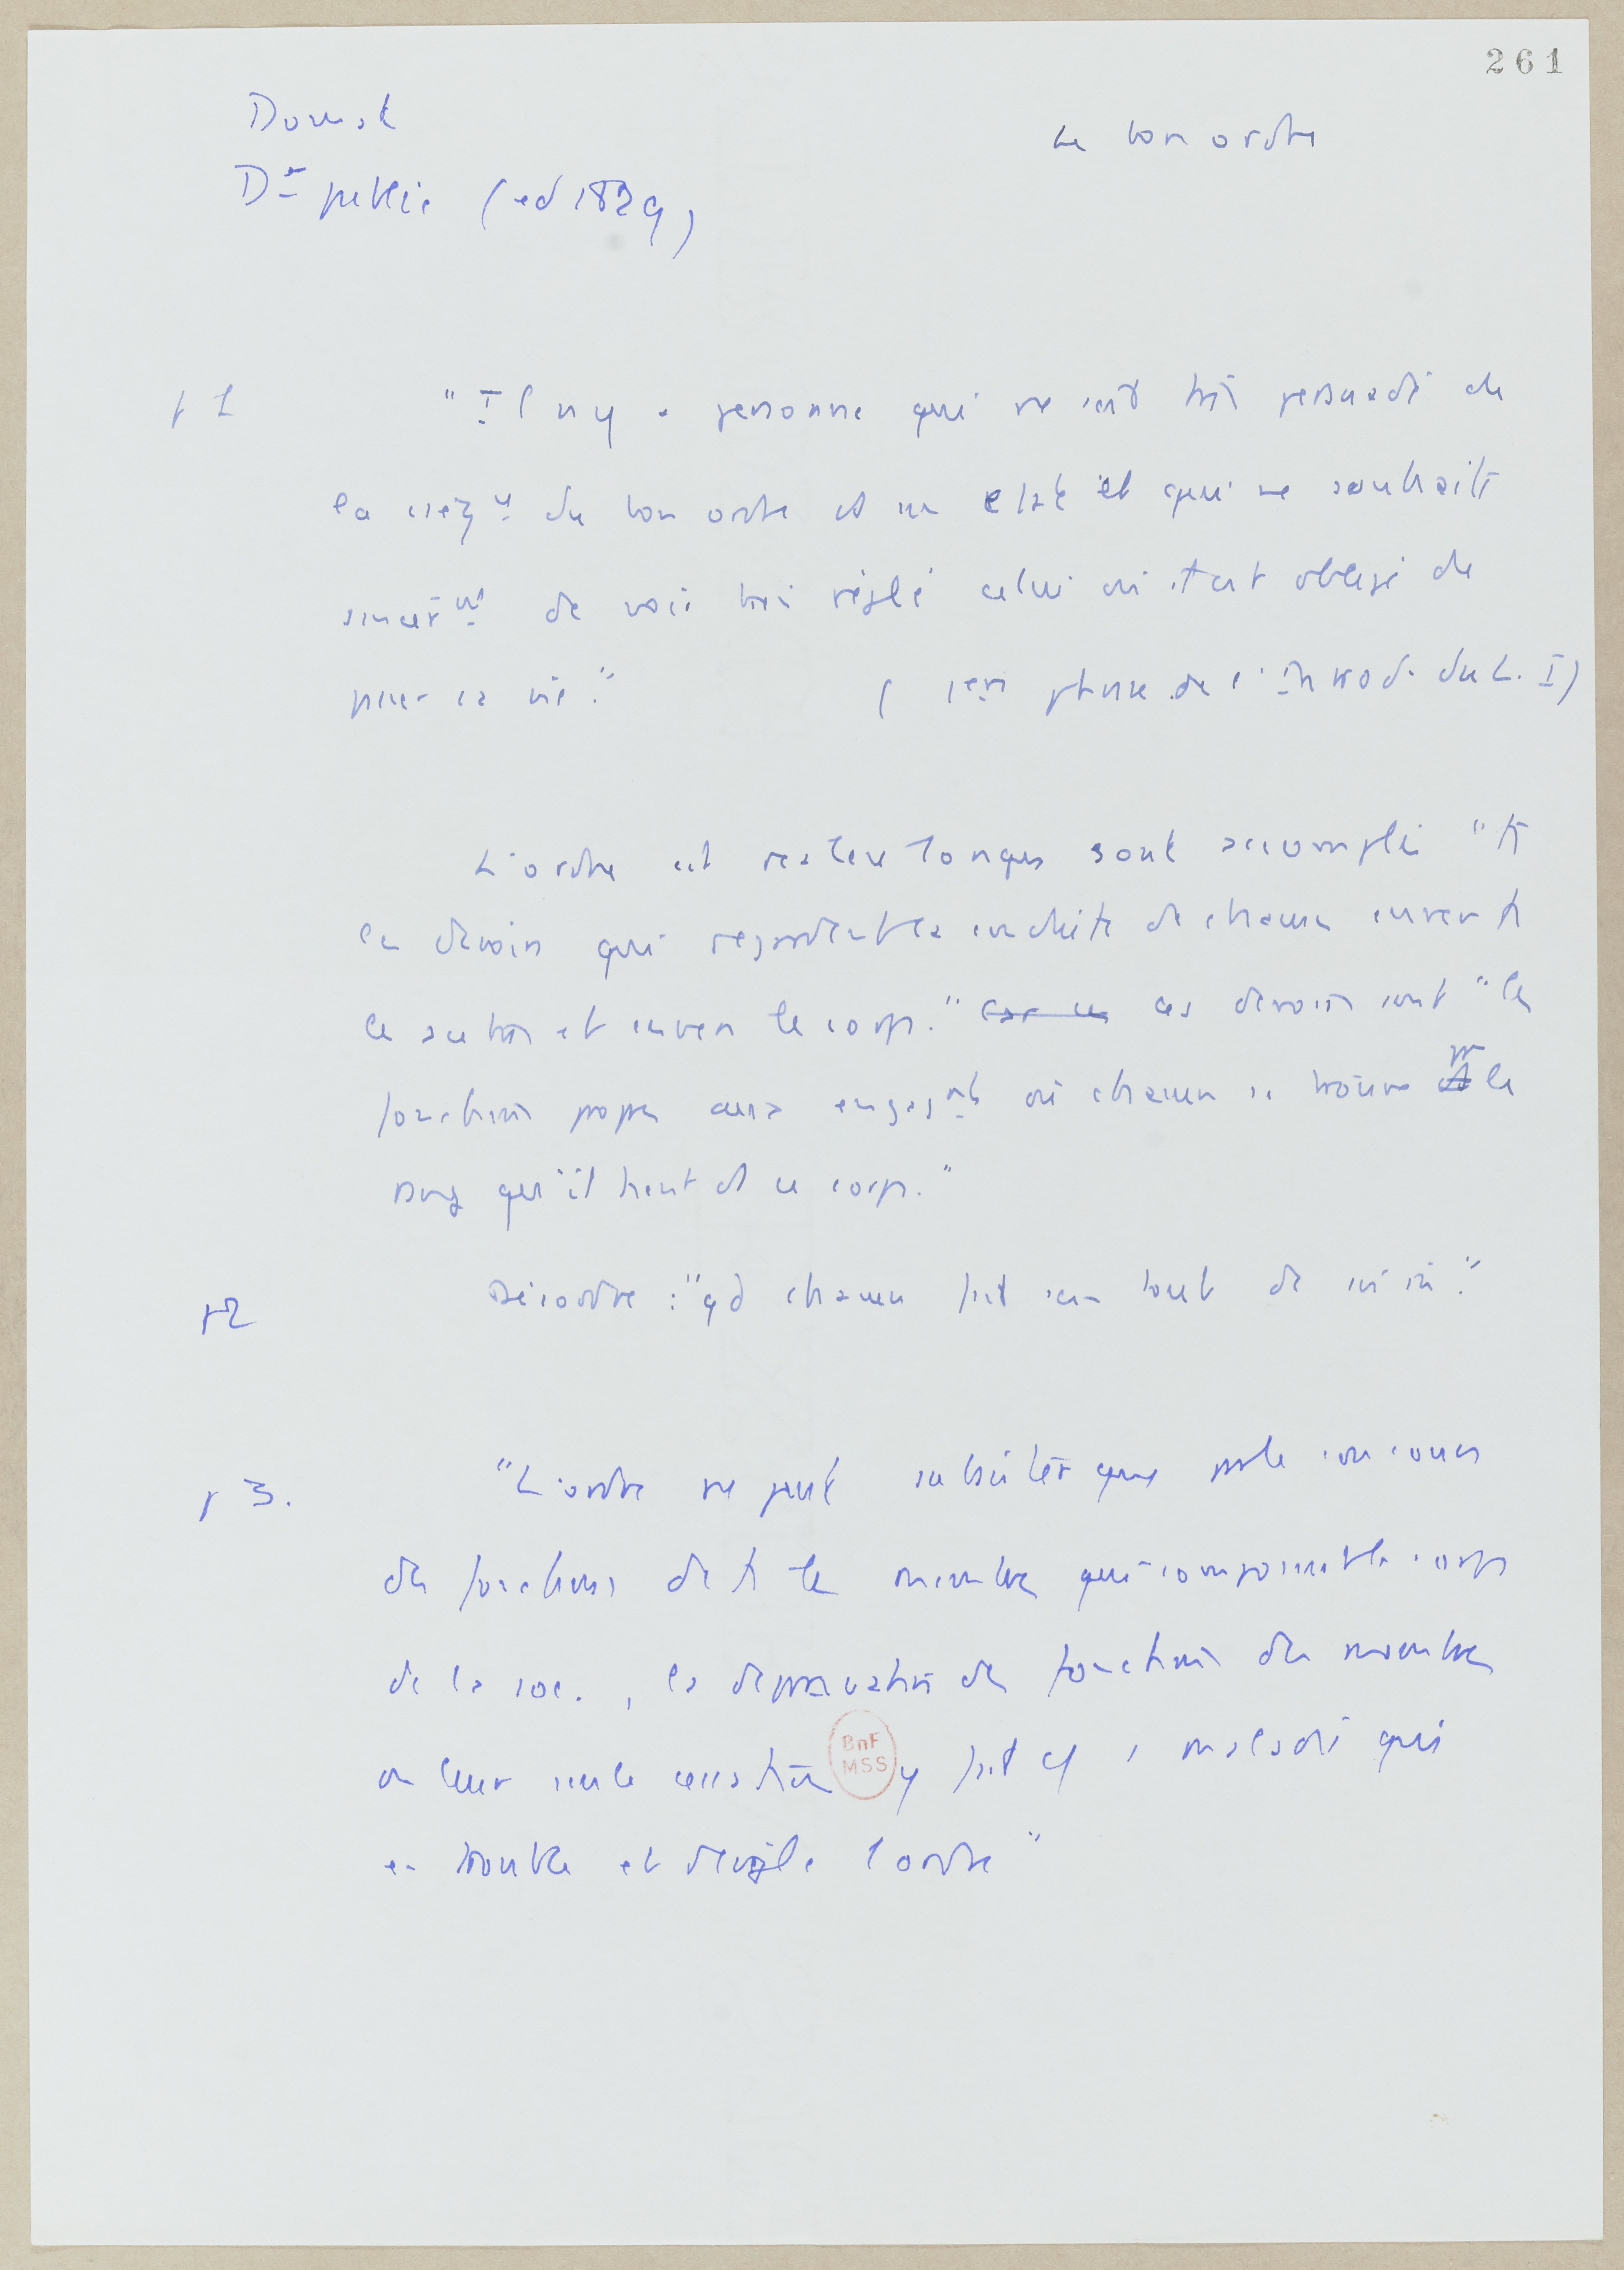 261
Domat
Dt public (ed 1829)
Le bon ordre
p 1 "Il n'y a personne qui ne soit bien persuadé de
la nécé du bon ordre ds un état et qui ne souhaite
sincèrmt de voir bien réglé celui où il est obligé de
passer sa vie." (1ère phrase de l'Introd. du L. I)
L'ordre est réalisé lorsque sont accomplis "ts
les devoirs qui regardent la conduite de chacun envers ts
les autres et envers le corps." ces devoirs sont "les
fonctions propres aux engagmts où chacun se trouve par le
rang qu'il tient ds ce corps."
p 2 Désordre : "qd chacun fait son tout de soi-même."
p 3. "L'ordre ne peut subsister que par le concours
des fonctions de ts les membres qui composent le corps
de la soc., la dépravation des fonctions des membres
ou leur seule cessation y fait cô 1 maladie qui
en trouble et dérègle l'ordre"
BnF
MSS